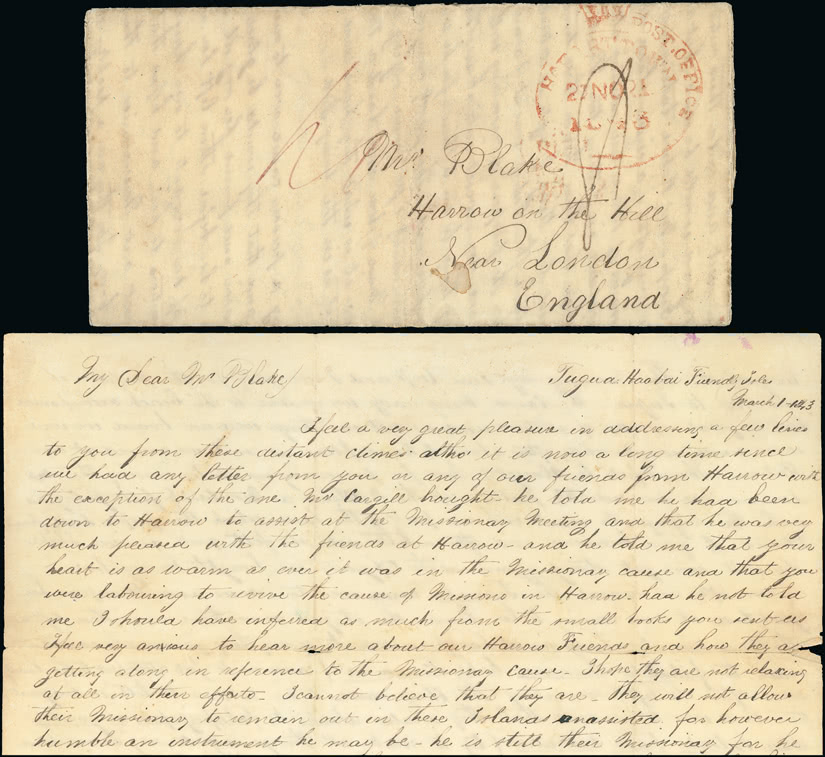 POST OFFICE
HOBART TOWN
21 NO 21
1843
Mr Blake
Harrow on the Hill
Near London
England
My Dear Mr Blake
Tugua Haabai Friendly Isles
March 1 - 1843
I feel a very great pleasure in addressing a few lines
to you from these distant climes altho' it is now a long time since
we had any letter from you or any of our friends from Harrow with
the exception of the one Mr Cargill bought - he told me he had been
down to Harrow to assist at the Missionary Meeting and that he was very
much pleased with the friends at Harrow - and he told me that your
heart is as warm as ever it was in the Missionary cause and that you
were labouring to revive the cause of Missions in Harrow had he not told
me I should have inferred as much from the small books you sent us
I feel very anxious to hear more about our Harrow Friends and how they a
getting along in reference to the Missionary cause - I hope they are not relaxing
at all in their efforts - I cannot believe that they are - they will not allow
their Missionary to remain out in these Islands unassisted for however
humble an instrument he may be - he is still their Missionary for he